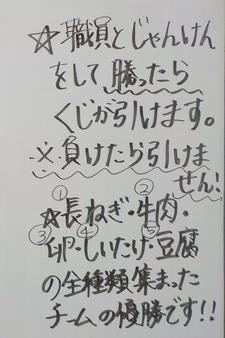 ☆職員とじゃんけん
をして勝ったら
くじが引けます。
※負けたら引けま
せん!
☆①長ねぎ・②牛肉・
③卵・④しいたけ・⑤豆腐
の全種類集まった
チームの優勝です!!